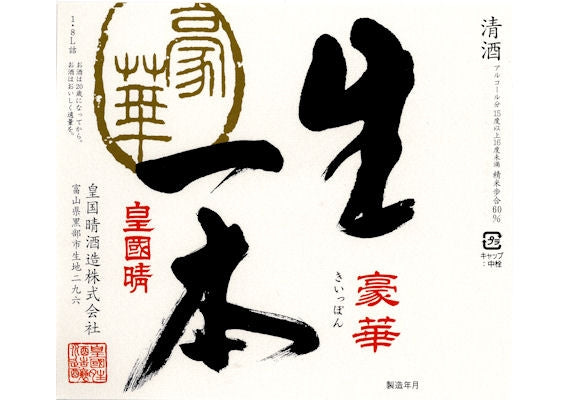 清酒
アルコール分 15度以上16度未満 精米歩合60%
プラ
キャップ
:中栓
生一本
きいっぽん
豪華
製造年月
豪華
皇國晴
皇国晴酒造株式会社
富山県黒部市生地二九六
お酒は20歳になってから。
お酒はおいしく適量を。
1・8L詰